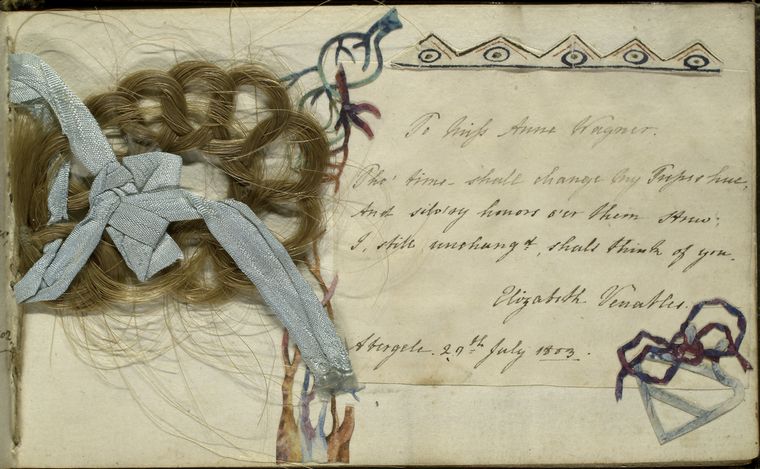 To Miss Anne Wagner.
Tho' time shall change my Tresses hue,
And silv'ry honors o'er them strew;
I, still unchang'd, shall think of you.
Elizabeth Venables.
Abergele. 29th July 1803.